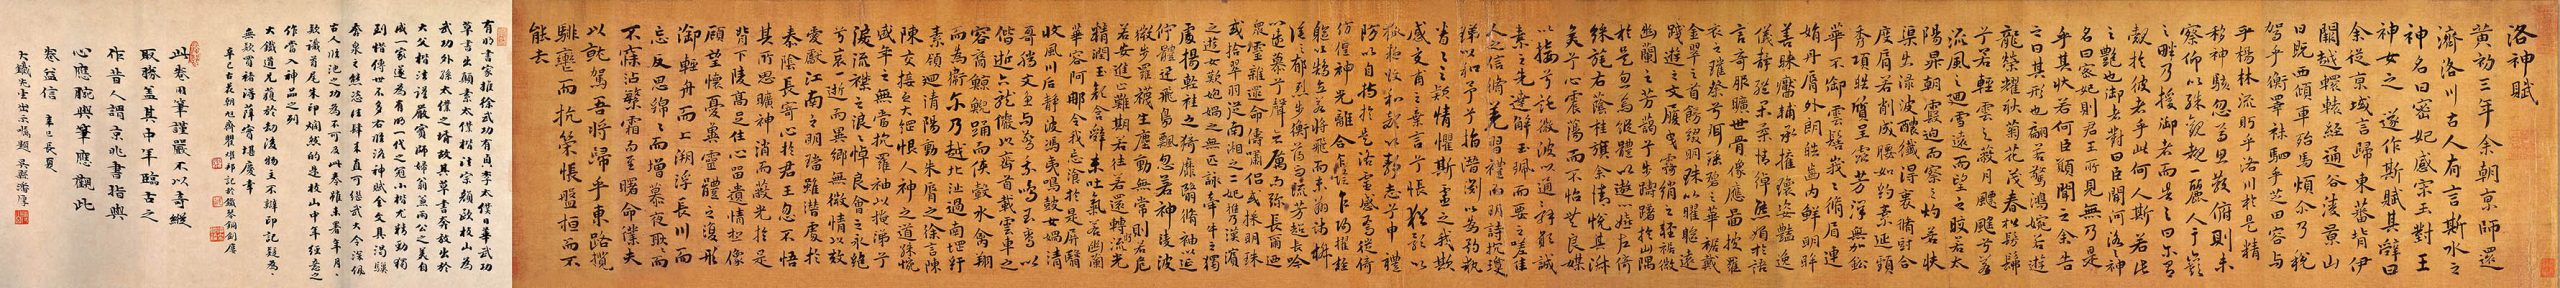 洛神賦
黃初三年余朝京師還
濟洛川古人有言斯水之
神名曰宓妃感宋玉對王
神女之 遂作斯賦其辭曰
余從京域言歸東藩背伊
闕越轘轅經通谷陵景山
日既西傾車殆馬煩尒乃稅
駕乎衡皋秣駟乎芝田容與
乎楊林流眄乎洛川於是精
移神駭忽焉思散俯則未
察仰以殊觀覩一麗人于巖
之畔乃援御者而告之曰尒有
覿於彼者乎此何人斯若此
之艷也御者對曰臣聞河洛之神
名曰宓妃則君王所見無乃是
乎其狀若何臣願聞之余告
之曰其形也翩若驚鴻婉若遊
龍榮耀秋菊花茂春松髣髴
兮若輕雲之蔽月飄颻兮若
流風之迴雪遠而望之皎若太
陽昇朝霞迫而察之灼若芙
渠出淥波醲纖得衷脩短合
度肩若削成腰如約素延頸
秀項皓質呈露芳澤無加鉛
華不御雲髻峩〻脩眉連
娟丹脣外朗皓齒內鮮明眸
善睞靨輔承權瓌姿豔逸
儀靜體閑柔情綽態媚於語
言奇服曠世骨像應圖披羅
衣之璀粲兮珥瑤碧之華裾戴
金翠之首飾綴明珠以耀軀
踐遠遊之文履曳霧綃之輕裾微
幽蘭之芳藹兮步踟躕於山隅
於是忽焉縱體以遨以嬉左倚
綵旄右蔭桂旗余情悅其淑
美兮心震蕩而不怡無良媒
以接兮託微波以通之辭願誠
素之先達解玉珮而要之嗟佳
人之信脩羌習禮而明詩抗瓊
珶以和予兮指潛淵以為期執
眷〻之款情懼斯靈之我欺
感交甫之棄言兮悵猶豫以
狐疑收和顏以靜志兮申禮
防以自持於是洛靈感焉徙倚
彷徨神光離合乍陰乍陽擢輕
軀以鶴立若將飛而未翔踐椒
塗之郁烈步蘅薄而流芳超長吟
以遠慕兮聲哀厲而彌長爾迺
眾靈雜遝命儔嘯侶或採明珠
或拾翠羽從南湘之二妃攜漢濱
之遊女歎匏媧之無匹詠牽牛之獨
處揚輕袿之猗靡翳脩袖以延
佇體迅飛鳧飄忽若神陵波
微步羅襪生塵動無常則若危
若安進止難期若往若還轉流光
精潤玉顏含辭未吐氣若幽蘭
華容阿那令我忘飡於是屏翳
收風川后靜波馮夷鳴鼓女媧清
哥騰文魚以警乘鳴玉鸞以
偕逝六龍儼以齊首載雲車之
容裔鯨鯢踊而夾轂水禽翔
而為衛尒乃越北沚過南堈紆
素領迴清陽動朱脣以徐言陳
陳交接之大綱恨人神之道殊怨
盛年之無當抗羅袖以掩涕兮
淚流襟之浪〻悼良會之永絕
兮哀一逝而異鄉無微情以效
愛獻江南之明璫雖潛處於
泰陰長寄心於君王忽不悟
其所思曠神消而蔽光於是
背下陵高足往心留遺情想像
顧望懷憂冀靈體之復形
御輕舟而上溯浮長川而
忘反思綿〻而增慕夜耿而
不寐沾繁霜而至曙命僕夫
以就駕吾將歸乎東路攬
騑轡而抗策悵盤桓而不
能去
有明書家推徐武功有貞李太僕日華武功
草書出顛素太僕楷法宗顏歐枝山為
武功外孫太僕之壻故其草書奔放出於
大父楷法謹嚴實師婦翁兼兩公之美自
成一家遂為有明一代之冠小楷尤精勁獨
到楷傳世不多右臨洛神賦全文具渴驥
奔泉之態恣
大鐵道兄
无欺
辛巳
此卷用筆謹嚴不以奇縱
取勝蓋其中年臨古之
作昔人謂京兆書指與
心應腕與筆應觀此
卷益信 辛巳長夏
大鐵先生出示囑題 吳縣潘厚